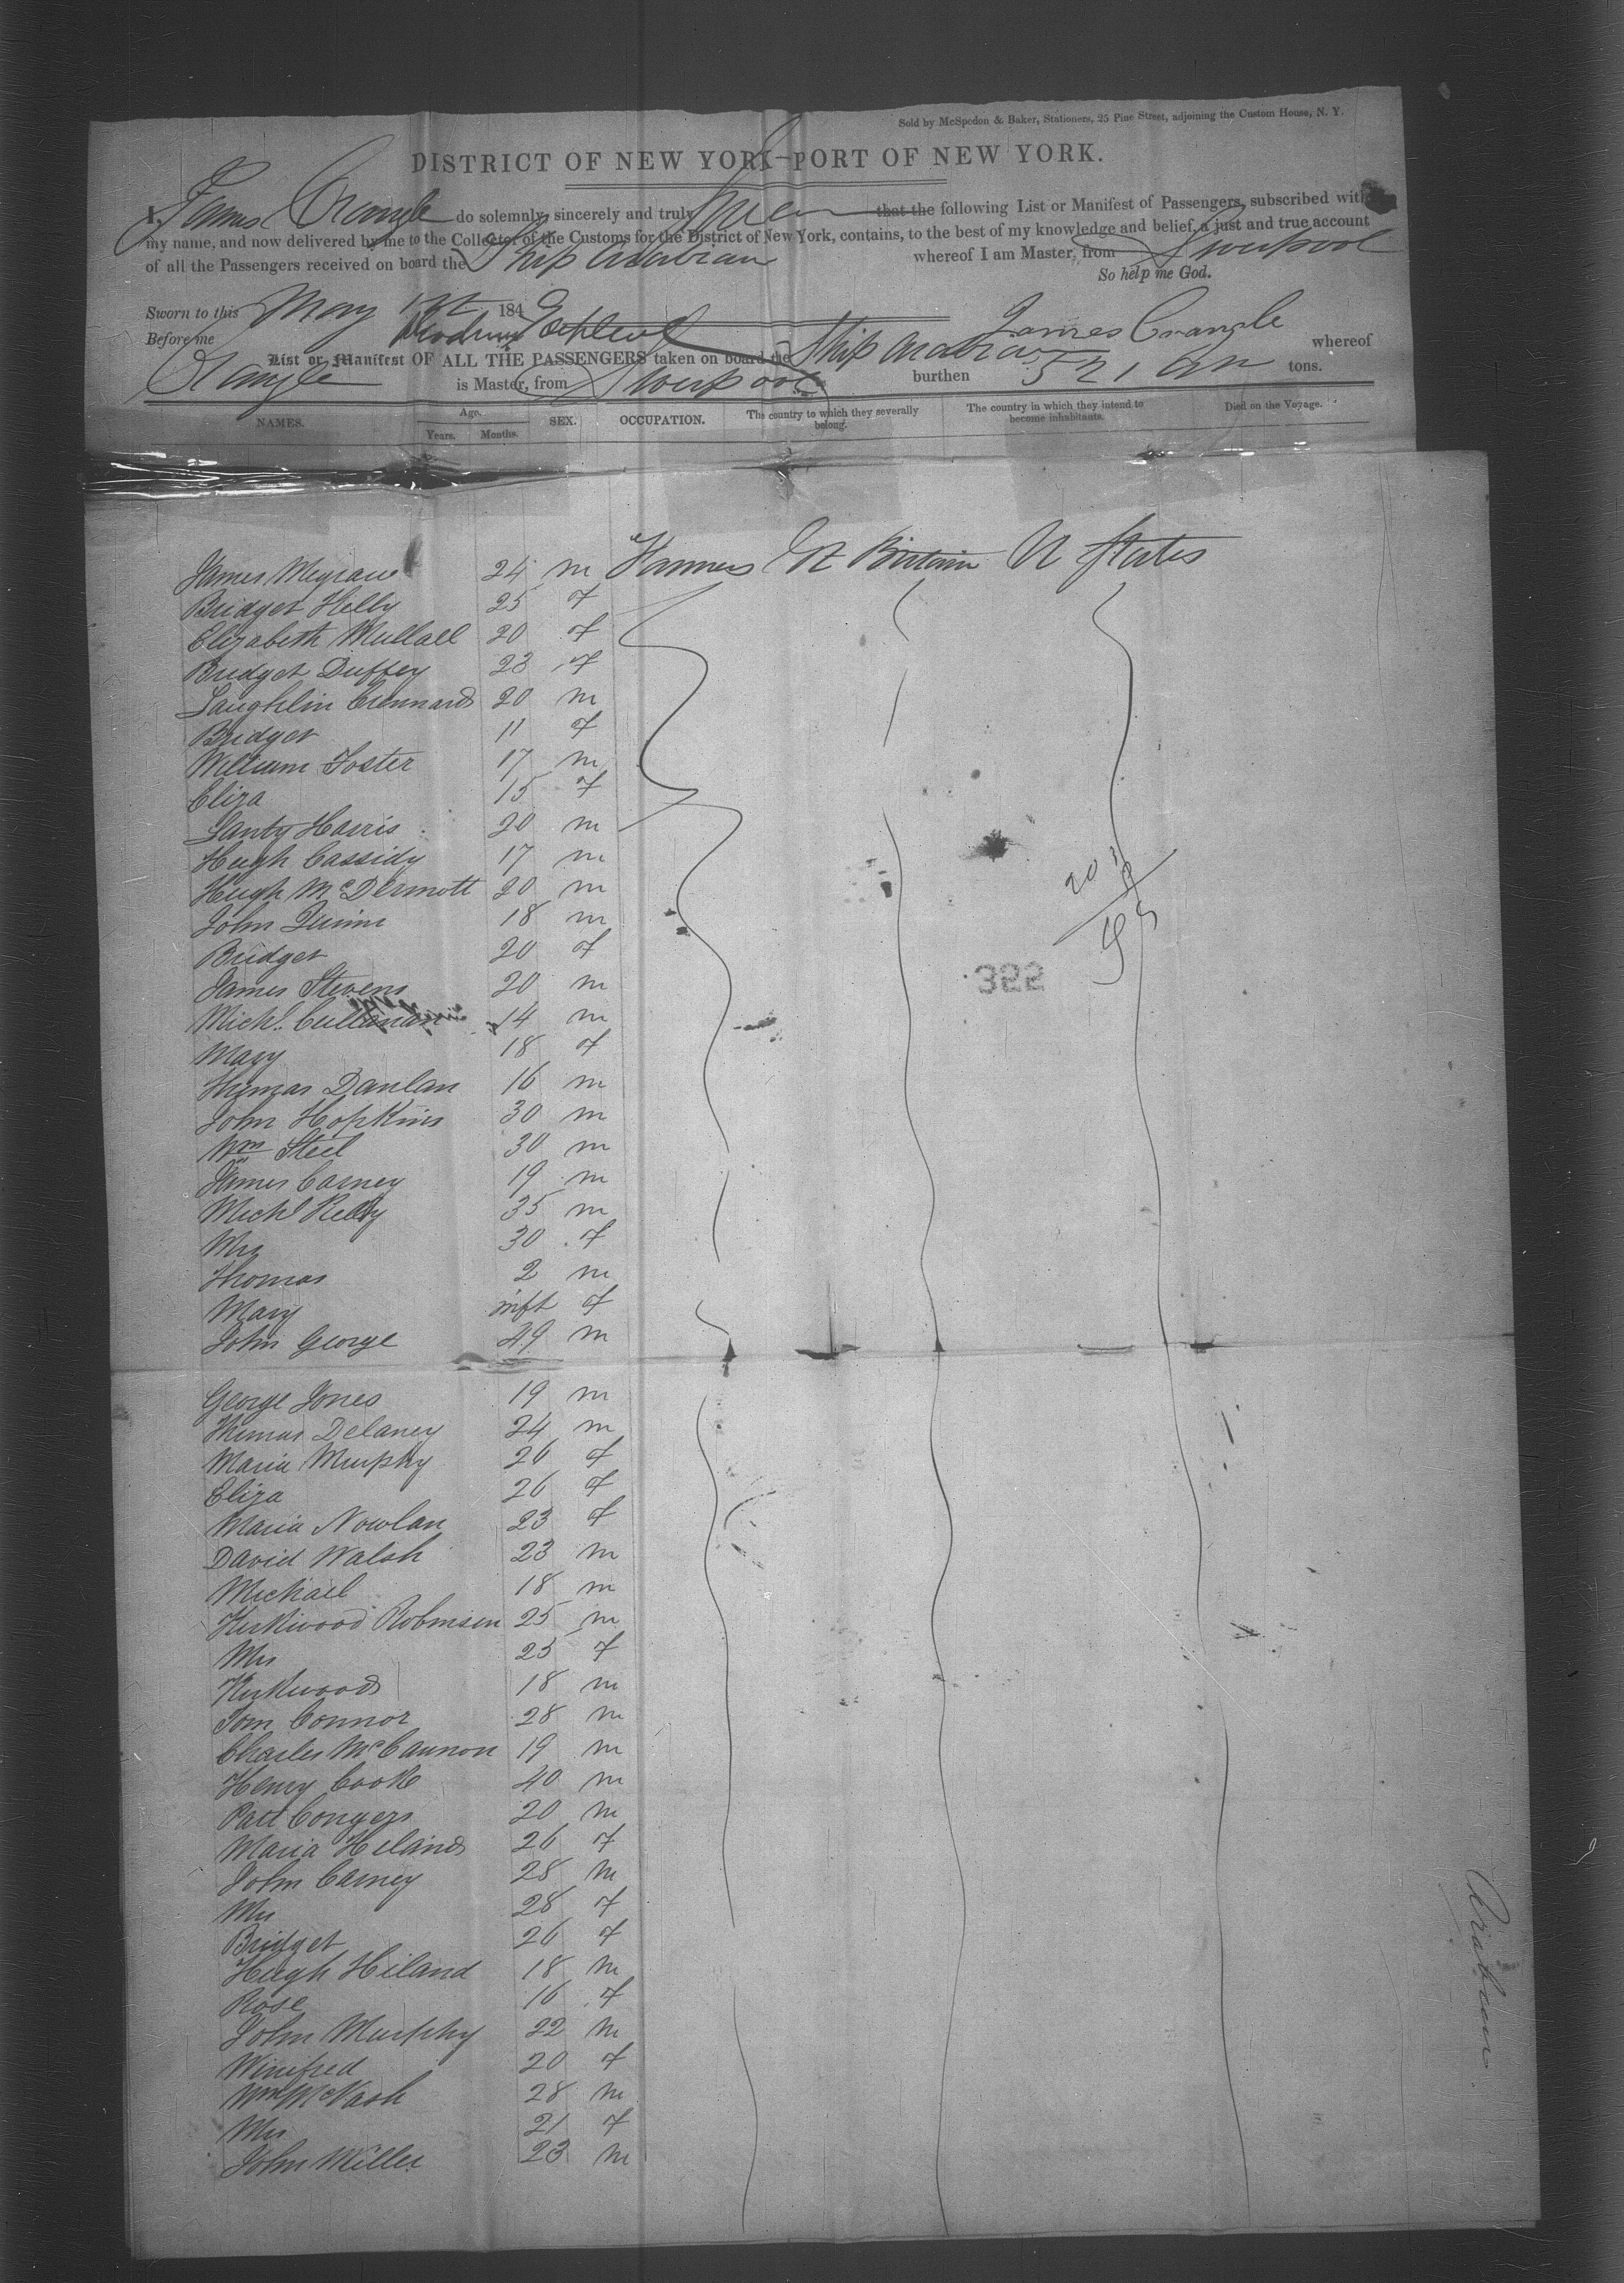 Sold by McSpedon & Baker, Stationers, 25 Pine Street, adjoining the Custom House, N. Y.
DISTRICT OF NEW YORK—PORT OF NEW YORK.
I, James Crangle do solemnly, sincerely and truly swear that the following List or Manifest of Passengers, subscribed with
my name, and now delivered by me to the Collector of the Customs for the District of New York, contains, to the best of my knowledge and belief, a just and true account
of all the Passengers received on board the Ship Arabian whereof I am Master, from Liverpool
So help me God.
Sworn to this May 184
Before me James Crangle
List or Manifest OF ALL THE PASSENGERS taken on board the Ship Arabian whereof
Crangle is Master, from Liverpool burthen 521 tons.
NAMES. Age. Years. Months. SEX. OCCUPATION. The country to which they severally belong. The country in which they intend to become inhabitants. Died on the Voyage.
James Megrave 24 m Farmers Gt Britain U States
Bridget Helly 25 f
Elizabeth Mullall 20 f
Bridget Duffey 23 f
Laughlin Crennard 20 m
Bridget 11 f
William Foster 17 m
Eliza 15 f
Lanty Harris 20 m
Hugh Cassidy 17 m
Hugh McDermott 20 m
John Quinn 18 m
Bridget 20 f
James Stevens 20 m
Michl. Cullanan 14 m
Mary 18 f
Thomas Danlan 16 m
John Hopkins 30 m
Wm Steel 30 m
James Carney 19 m
Michl Reily 35 m
Mrs 30 f
Thomas 2 m
Mary inft f
John George 49 m
George Jones 19 m
Thomas Delaney 24 m
Maria Murphy 26 f
Eliza 26 f
Maria Nowlan 23 f
David Walsh 23 m
Michael 18 m
Kirkwood Robinson 25 m
Mrs 23 f
Kirkwood 18 m
Tom Connor 28 m
Charles McCannon 19 m
Henry Cook 40 m
Patt Conyers 20 m
Maria Heland 26 f
John Carney 28 m
Mrs 28 f
Bridget 26 f
Hugh Hiland 18 m
Rose 16 f
John Murphy 22 m
Winifred 20 f
Wm McNash 28 m
Mrs 21 f
John Miller 23 m
20
385
Arabian